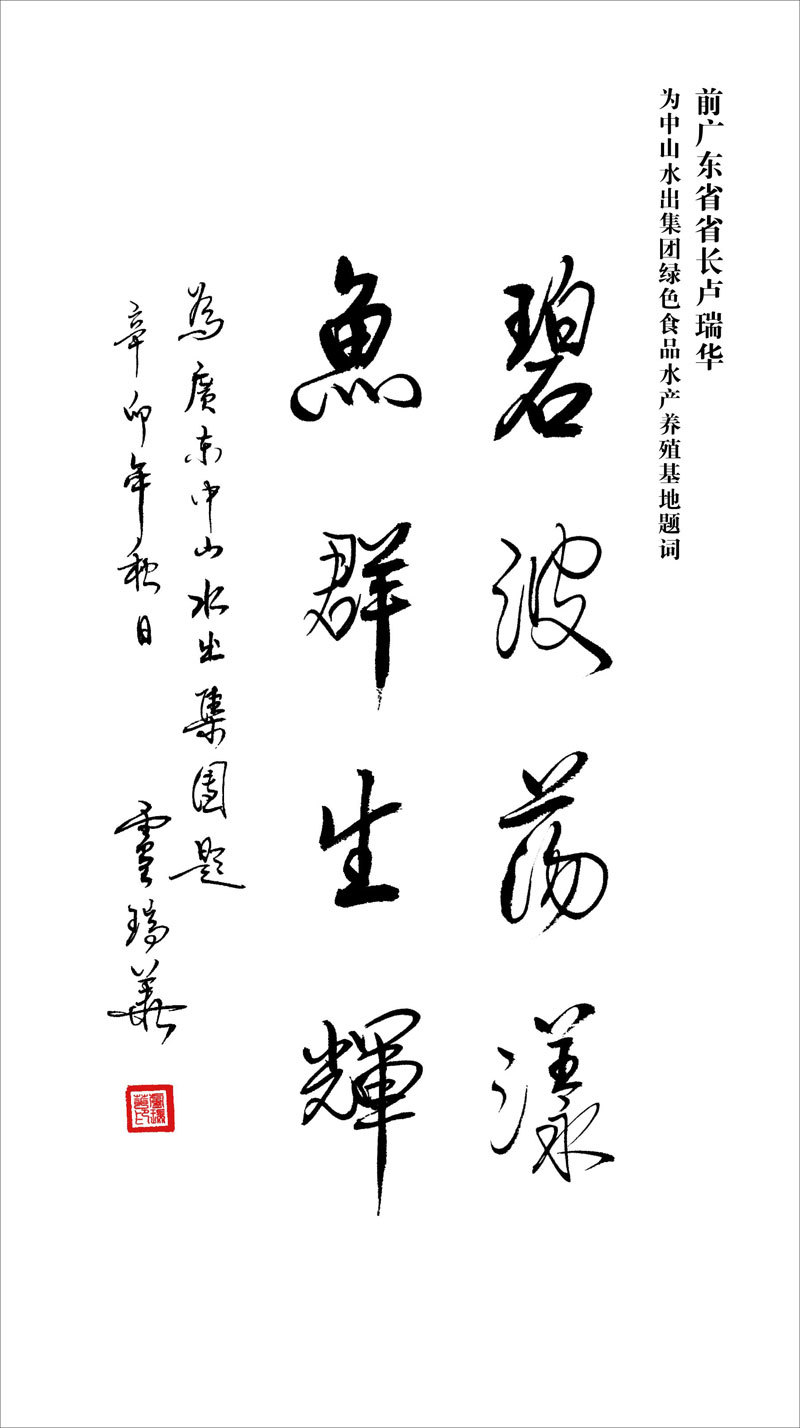 前广东省省长卢瑞华
为中山水出集团绿色食品水产养殖基地题词
碧波荡漾
魚群生輝
為廣东中山水出集團題
辛卯年秋日 盧瑞華